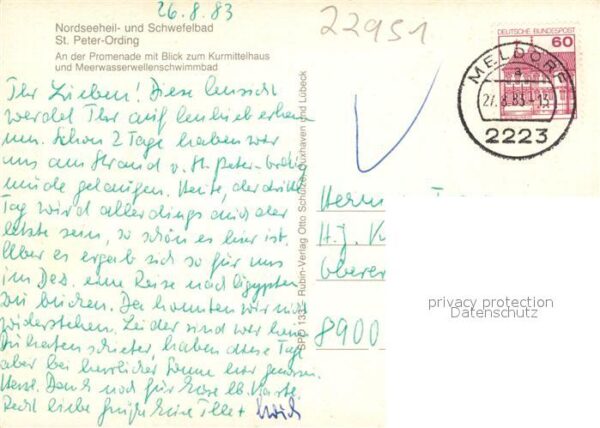 26.8.83
22951
Nordseeheil- und Schwefelbad
St. Peter-Ording
An der Promenade mit Blick zum Kurmittelhaus
und Meerwasserwellenschwimmbad
DEUTSCHE BUNDESPOST
60
MELDORF
a
27.8.83-15
2223
Ihr Lieben! Diese Ansicht
werdet Ihr auf Anhieb erken
nen. Schon 2 Tage haben wir
uns am Strand v. St. Peter-
gelegen. Heute, der dritte
Tag wird allerdings auch der
letzte sein, so schön es hier ist.
Aber es ergab sich so für uns
im Dez. eine Reise nach Ägypten
zu buchen. Da konnten wir nicht
widerstehen. Leider sind wir
haben diese Tage
aber bei herrlicher Sonne sehr genossen.
Herzl. Dank noch für Eure lb. Karte.
Recht liebe Grüße Eure +
SPO 1331 Rubin-Verlag Otto Schulze, Cuxhaven und Lübeck
Herrn
H. J. K
Oberer
8900
privacy protection
Datenschutz